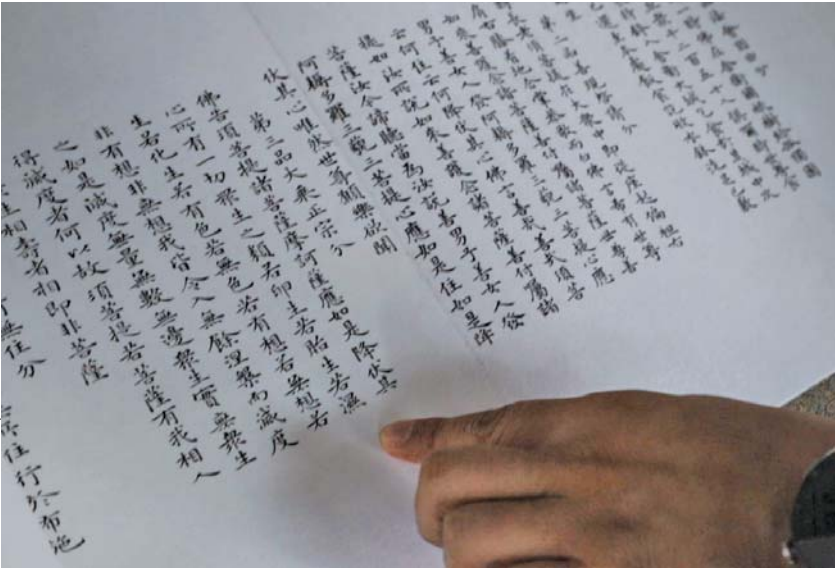 會因由分
一時佛在舍衛國祇樹給孤獨園
眾千二百五十人俱爾時世尊食
持缽入舍衛大城乞食於其城中次
已還至本處飯食訖收衣缽洗足已敷
坐
第二品善現啟請分
時長老須菩提在大衆中即從座起偏袒右
肩右膝著地合掌恭敬而白佛言希有世尊
如來善護念諸菩薩善付囑諸菩薩世尊善
男子善女人發阿耨多羅三藐三菩提心應
云何住云何降伏其心佛言善哉善哉須菩
提如汝所說如來善護念諸菩薩善付囑諸
菩薩汝今諦聽當為汝說善男子善女人發
阿耨多羅三藐三菩提心應如是住如是降
伏其心唯然世尊願樂欲聞
第三品大乘正宗分
佛告須菩提諸菩薩摩訶薩應如是降伏其
心所有一切衆生之類若卵生若胎生若濕
生若化生若有色若無色若有想若無想若
非有想非無想我皆令入無餘涅槃而滅度
之如是滅度無量無數無邊衆生實無衆生
得滅度者何以故須菩提若菩薩有我相人
生相壽者相即非菩薩
行無住分
住行於布施